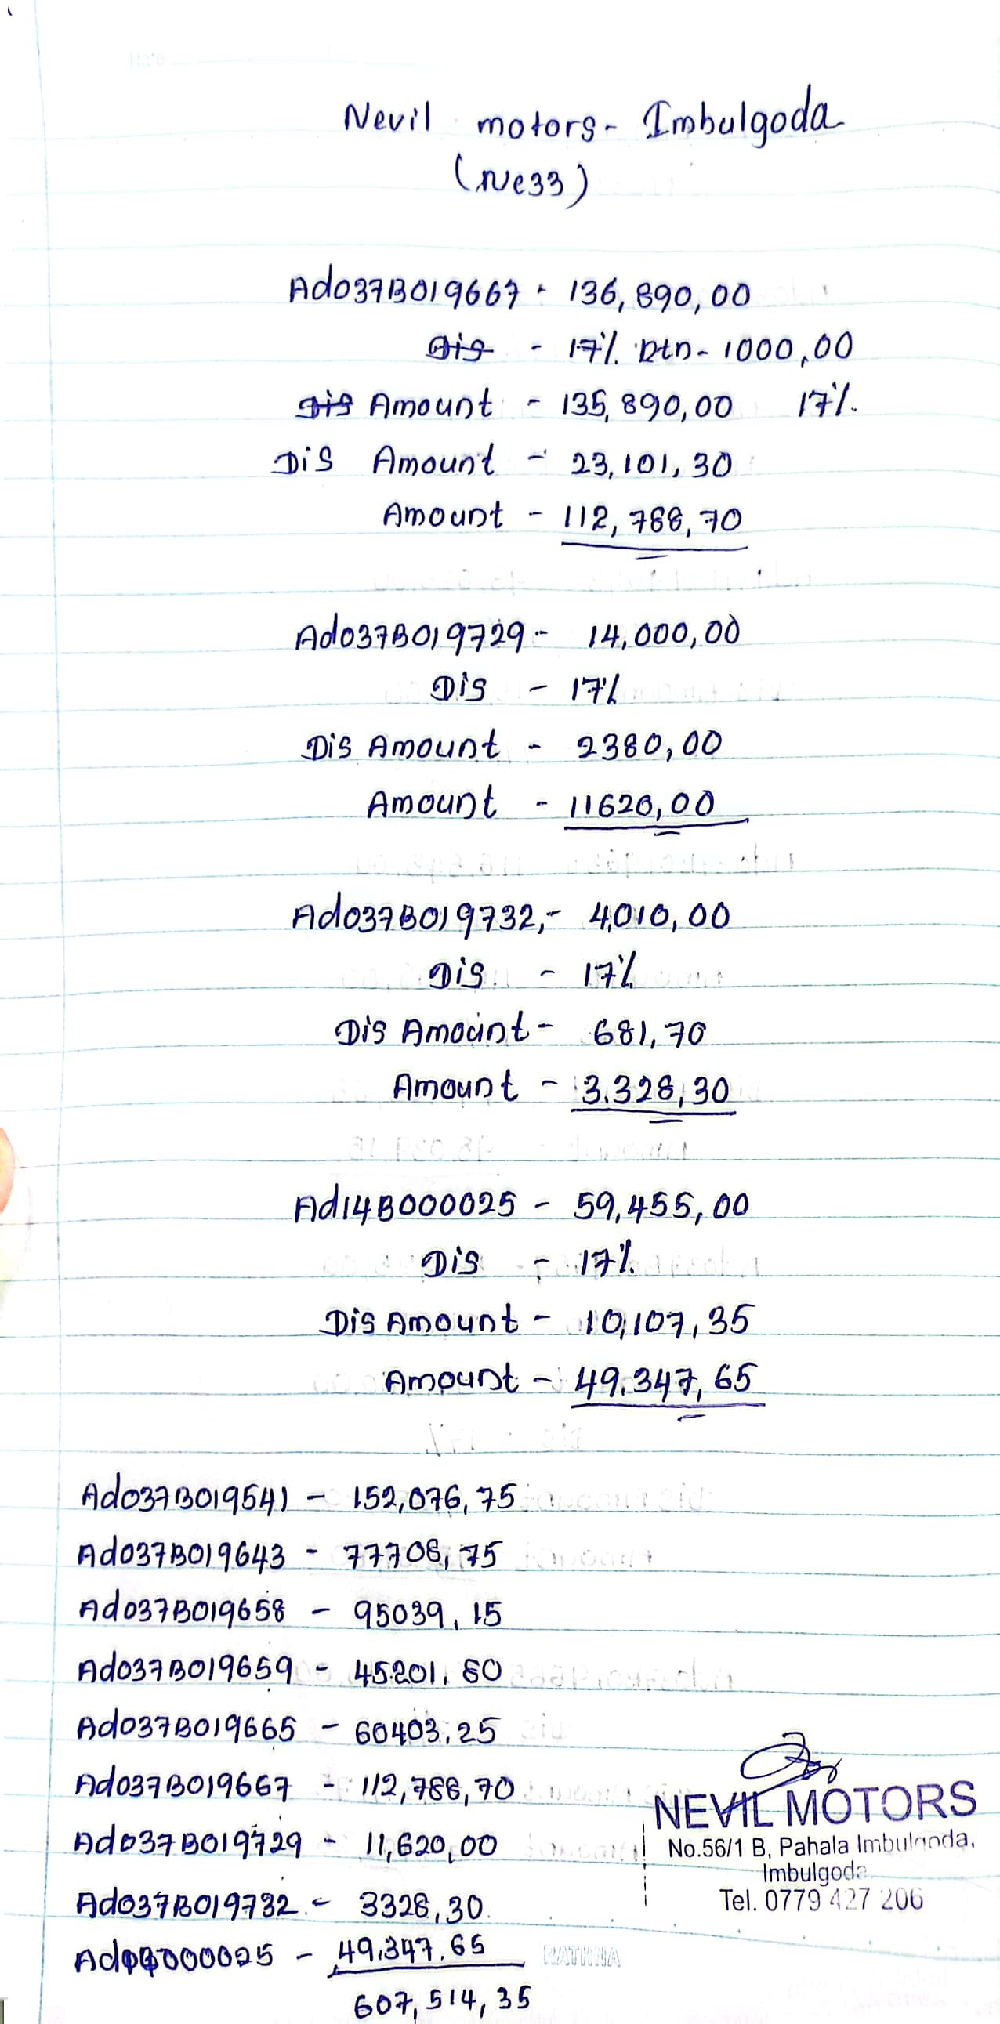 Nevil motors - Imbulgoda
(Ne33)
Ad037B019667 - 136,890,00
Dis - 17% Rtn - 1000,00
Dis Amount - 135,890,00 17%
Dis Amount - 23,101,30
Amount - 112,788,70
Ad037B019729 - 14,000,00
Dis - 17%
Dis Amount - 2380,00
Amount - 11620,00
Ad037B019732,- 4,010,00
Dis - 17%
Dis Amount - 681,70
Amount - 3.328,30
Ad14B000025 - 59,455,00
Dis - 17%
Dis Amount - 10,107,35
Amount - 49.347,65
Ad037B019541 - 152,076,75
Ad037B019643 - 77708,75
Ad037B019658 - 95039,15
Ad037B019659 - 45201.80
Ad037B019665 - 60403.25
Ad037B019667 - 112,788,70
Ad037B019729 - 11,620,00
Ad037B019732 - 3328,30
Ad14B000025 - 49.347.65
607,514,35
NEVIL MOTORS
No.56/1 B, Pahala Imbulgoda,
Imbulgoda
Tel. 0779 427 206
RATHNA